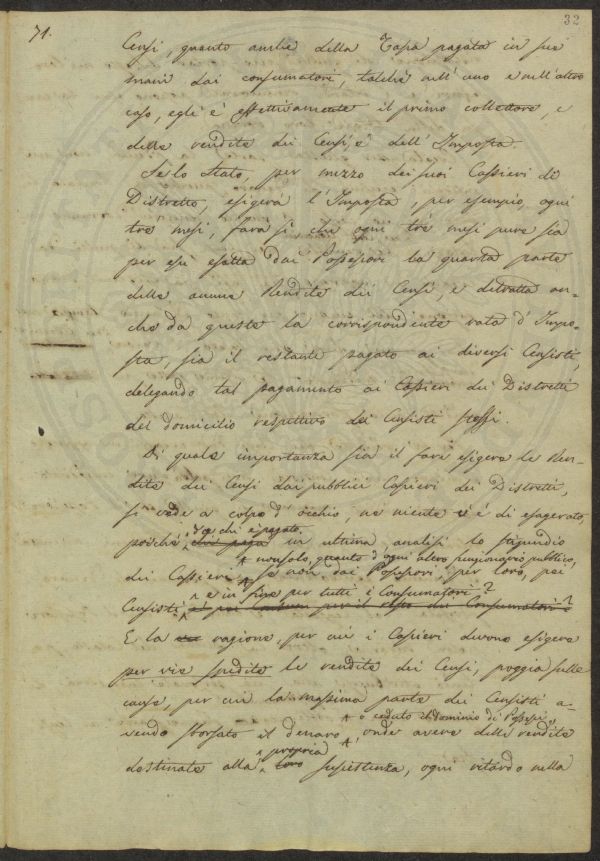 71.
32
Censi, quanto anche della Tassa pagata in sue
mani dai consumatori, talchè nell'uno e nell'altro
caso, egli è effettivamente il primo collettore, e
delle rendite dei Censi, e dell'Imposta.
Se lo Stato, per mezzo dei suoi Cassieri di
Distretto, esigerà l'Imposta, per esempio, ogni
tré mesi, farà sì, chè ogni tré mesi pure sia
per essi esatta dai Possessori la quarta parte
delle annue Rendite dei Censi, e detratta an-
che da queste la corrispondente rata d'Impo-
sta, sia il restante pagato ai diversi Censisti,
delegando tal pagamento ai Cassieri dei Distretti
del domicilio respettivo dei Censisti stessi.
Di quale importanza sia il fare esigere le Ren-
dite dei Censi dai pubblici Cassieri dei Distretti,
si vede a colpo d'occhio, nè niente v'è di esagerato,
poichè da chi è pagato in ultima analisi lo stipendio
dei Cassieri, non solo, quanto d'ogni altro funzionario pubblico,
se non dai Possessori per loro, pei
Censisti e in fine per tutti i Consumatori?
E la ragione, per cui i Cassieri devono esigere
per vie spedite le rendite dei Censi, poggia sulle
cause, per cui la massima parte dei Censisti a-
vendo sborsato il denaro, o ceduto il dominio di Possessi, onde avere delle rendite
destinate alla propria sussistenza, ogni ritardo nella